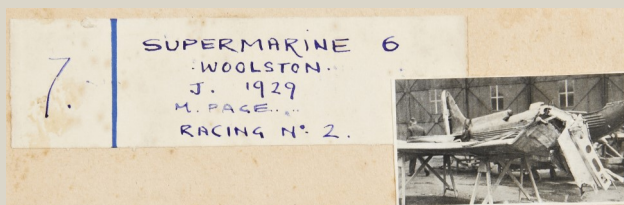 7.
SUPERMARINE 6
WOOLSTON.
J. 1929
M. PAGE...
RACING Nº 2.